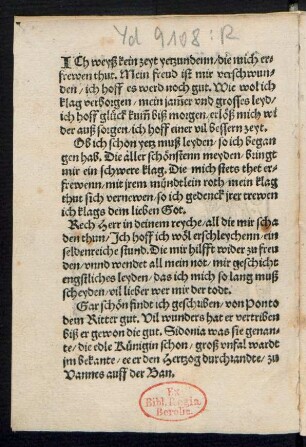 Yd 9108:R
ICh weyß kein zeyt yetzundenn/die mich er-
frewen thut. Mein freud ist mir verschwun-
den/ich hoff es werd noch gut. Wie wol ich
klag verborgen/mein jamer vnd grosses leyd/
ich hoff glück kum̃ biß morgen/erlöß mich wi
der auß sorgen/ich hoff einer vil bessern zeyt.
Ob ich schon yetz muß leyden/so ich began
gen hab. Die aller schönstenn meyden/bringt
mir ein schwere klag. Die mich stets thet er-
frewenn/mit jrem mündtlein roth/mein klag
thut sich vernewen/so ich gedenck jrer trewen
ich klags dem lieben Got.
Rech Herr in deinem reyche/all die mir scha
den thun/Ich hoff ich wöl erschleychenn/ein
seldenreiche stund. Die mir hilfft wider zu freu
den/vnnd wendt all mein not/mir geschicht
engstliches leyden/das ich mich so lang muß
scheyden/vil lieber wer mir der todt.
Gar schön findt ich geschriben/von Ponto
dem Ritter gut. Vil wunders hat er vertriben
biß er gewon die gut. Sidonia was sie genan-
te/die edle Künigin schon/groß vnfal wardt
jm bekante/ee er den Hertzog durchrandte/zu
Vannes auff der Ban.
Ex
Bibl. Regia
Berolin.